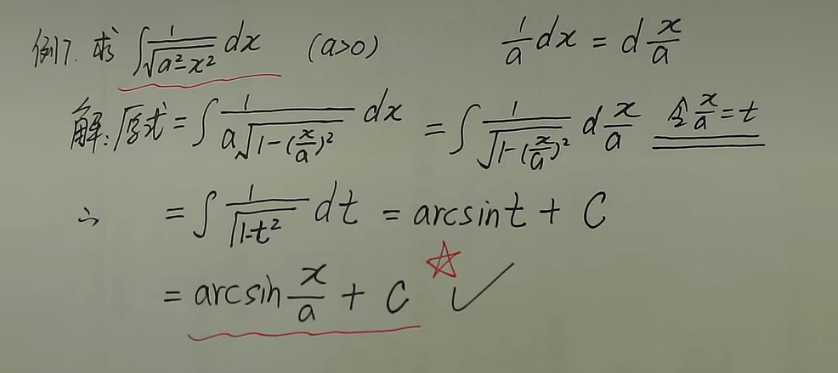 例7. 求 ∫ 1/√(a²-x²) dx (a>0) 1/a dx = d x/a
解: 原式 = ∫ 1/(a√(1-(x/a)²)) dx = ∫ 1/√(1-(x/a)²) d x/a 令 x/a = t
∴ = ∫ 1/√(1-t²) dt = arcsint + C
= arcsin x/a + C ☆ ✓